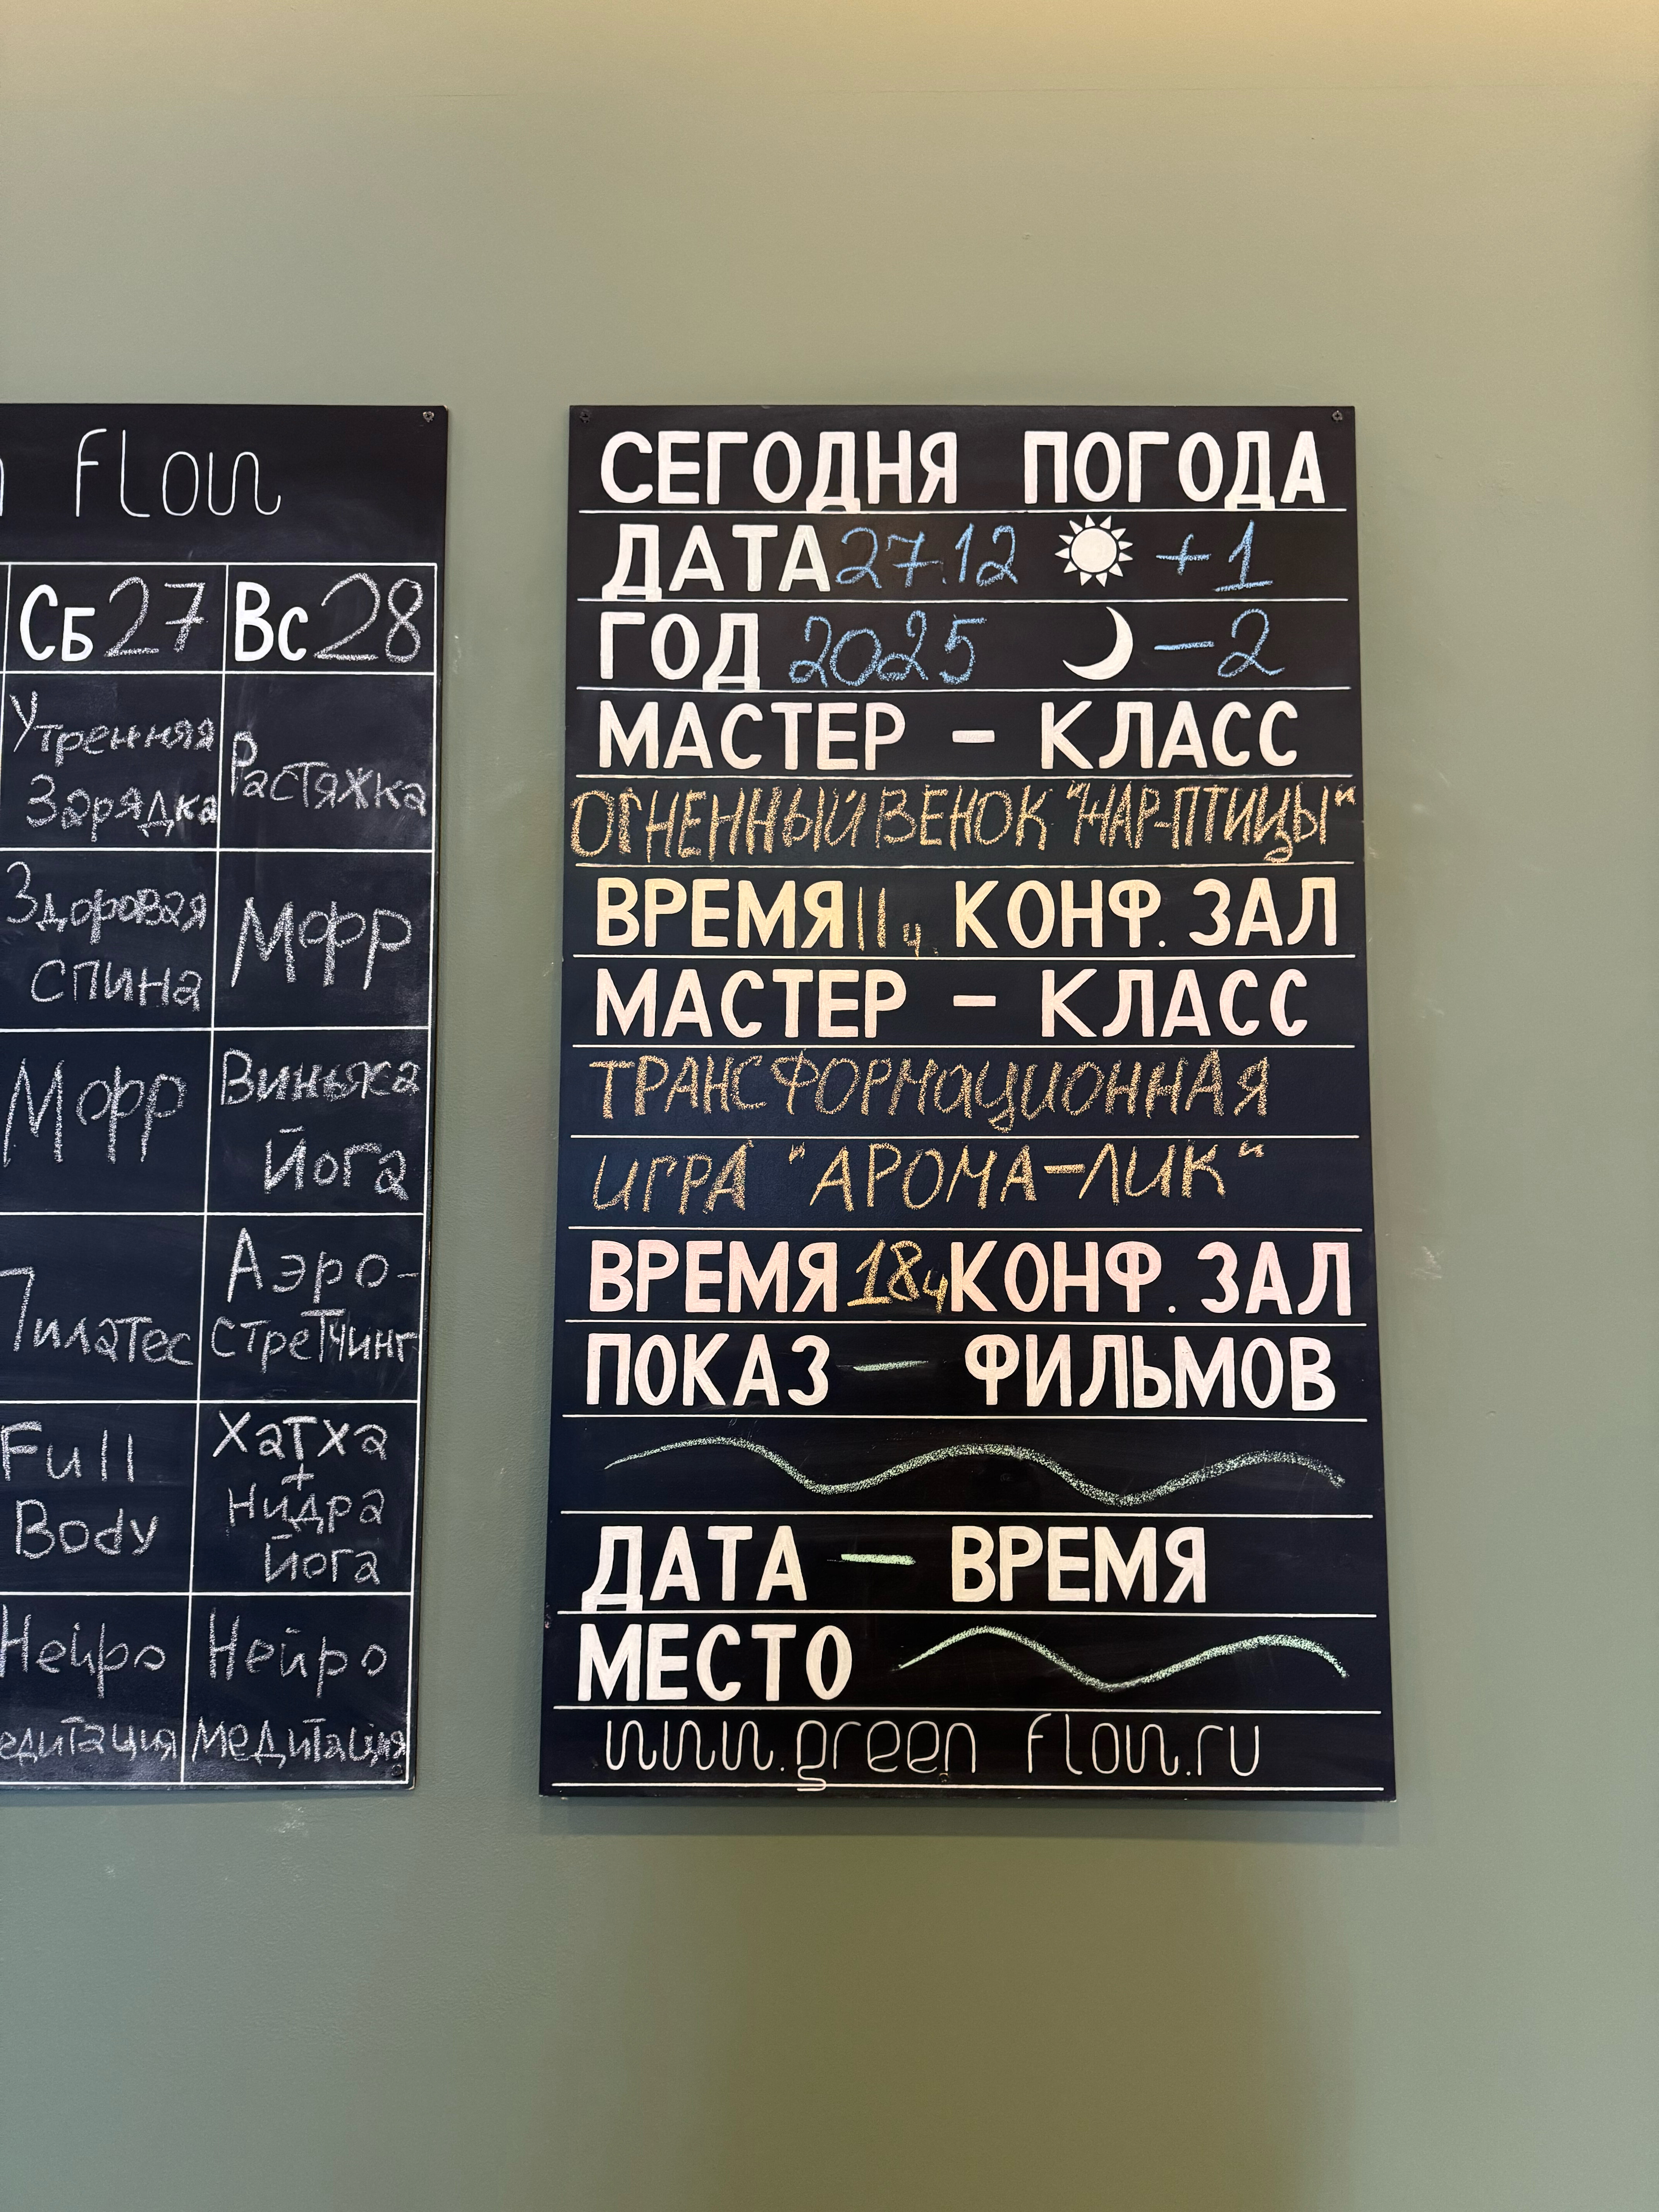 flow
Сб 27
Вс 28
Утренняя
Зарядка
Растяжка
Здоровая
спина
Мфр
Мфр
Виньяса
Йога
Пилатес
Аэро-
стретчинг
Full
Body
Хатха
+
нидра
йога
Нейро
медитация
Нейро
медитация
СЕГОДНЯ ПОГОДА
ДАТА 27.12 +1
ГОД 2025 -2
МАСТЕР - КЛАСС
ОГНЕННЫЙ ВЕНОК "ЖАР-ПТИЦЫ"
ВРЕМЯ 11ч КОНФ. ЗАЛ
МАСТЕР - КЛАСС
ТРАНСФОРМАЦИОННАЯ
ИГРА "АРОМА-ЛИК"
ВРЕМЯ 18ч КОНФ. ЗАЛ
ПОКАЗ - ФИЛЬМОВ
ДАТА - ВРЕМЯ
МЕСТО
www.green flow.ru